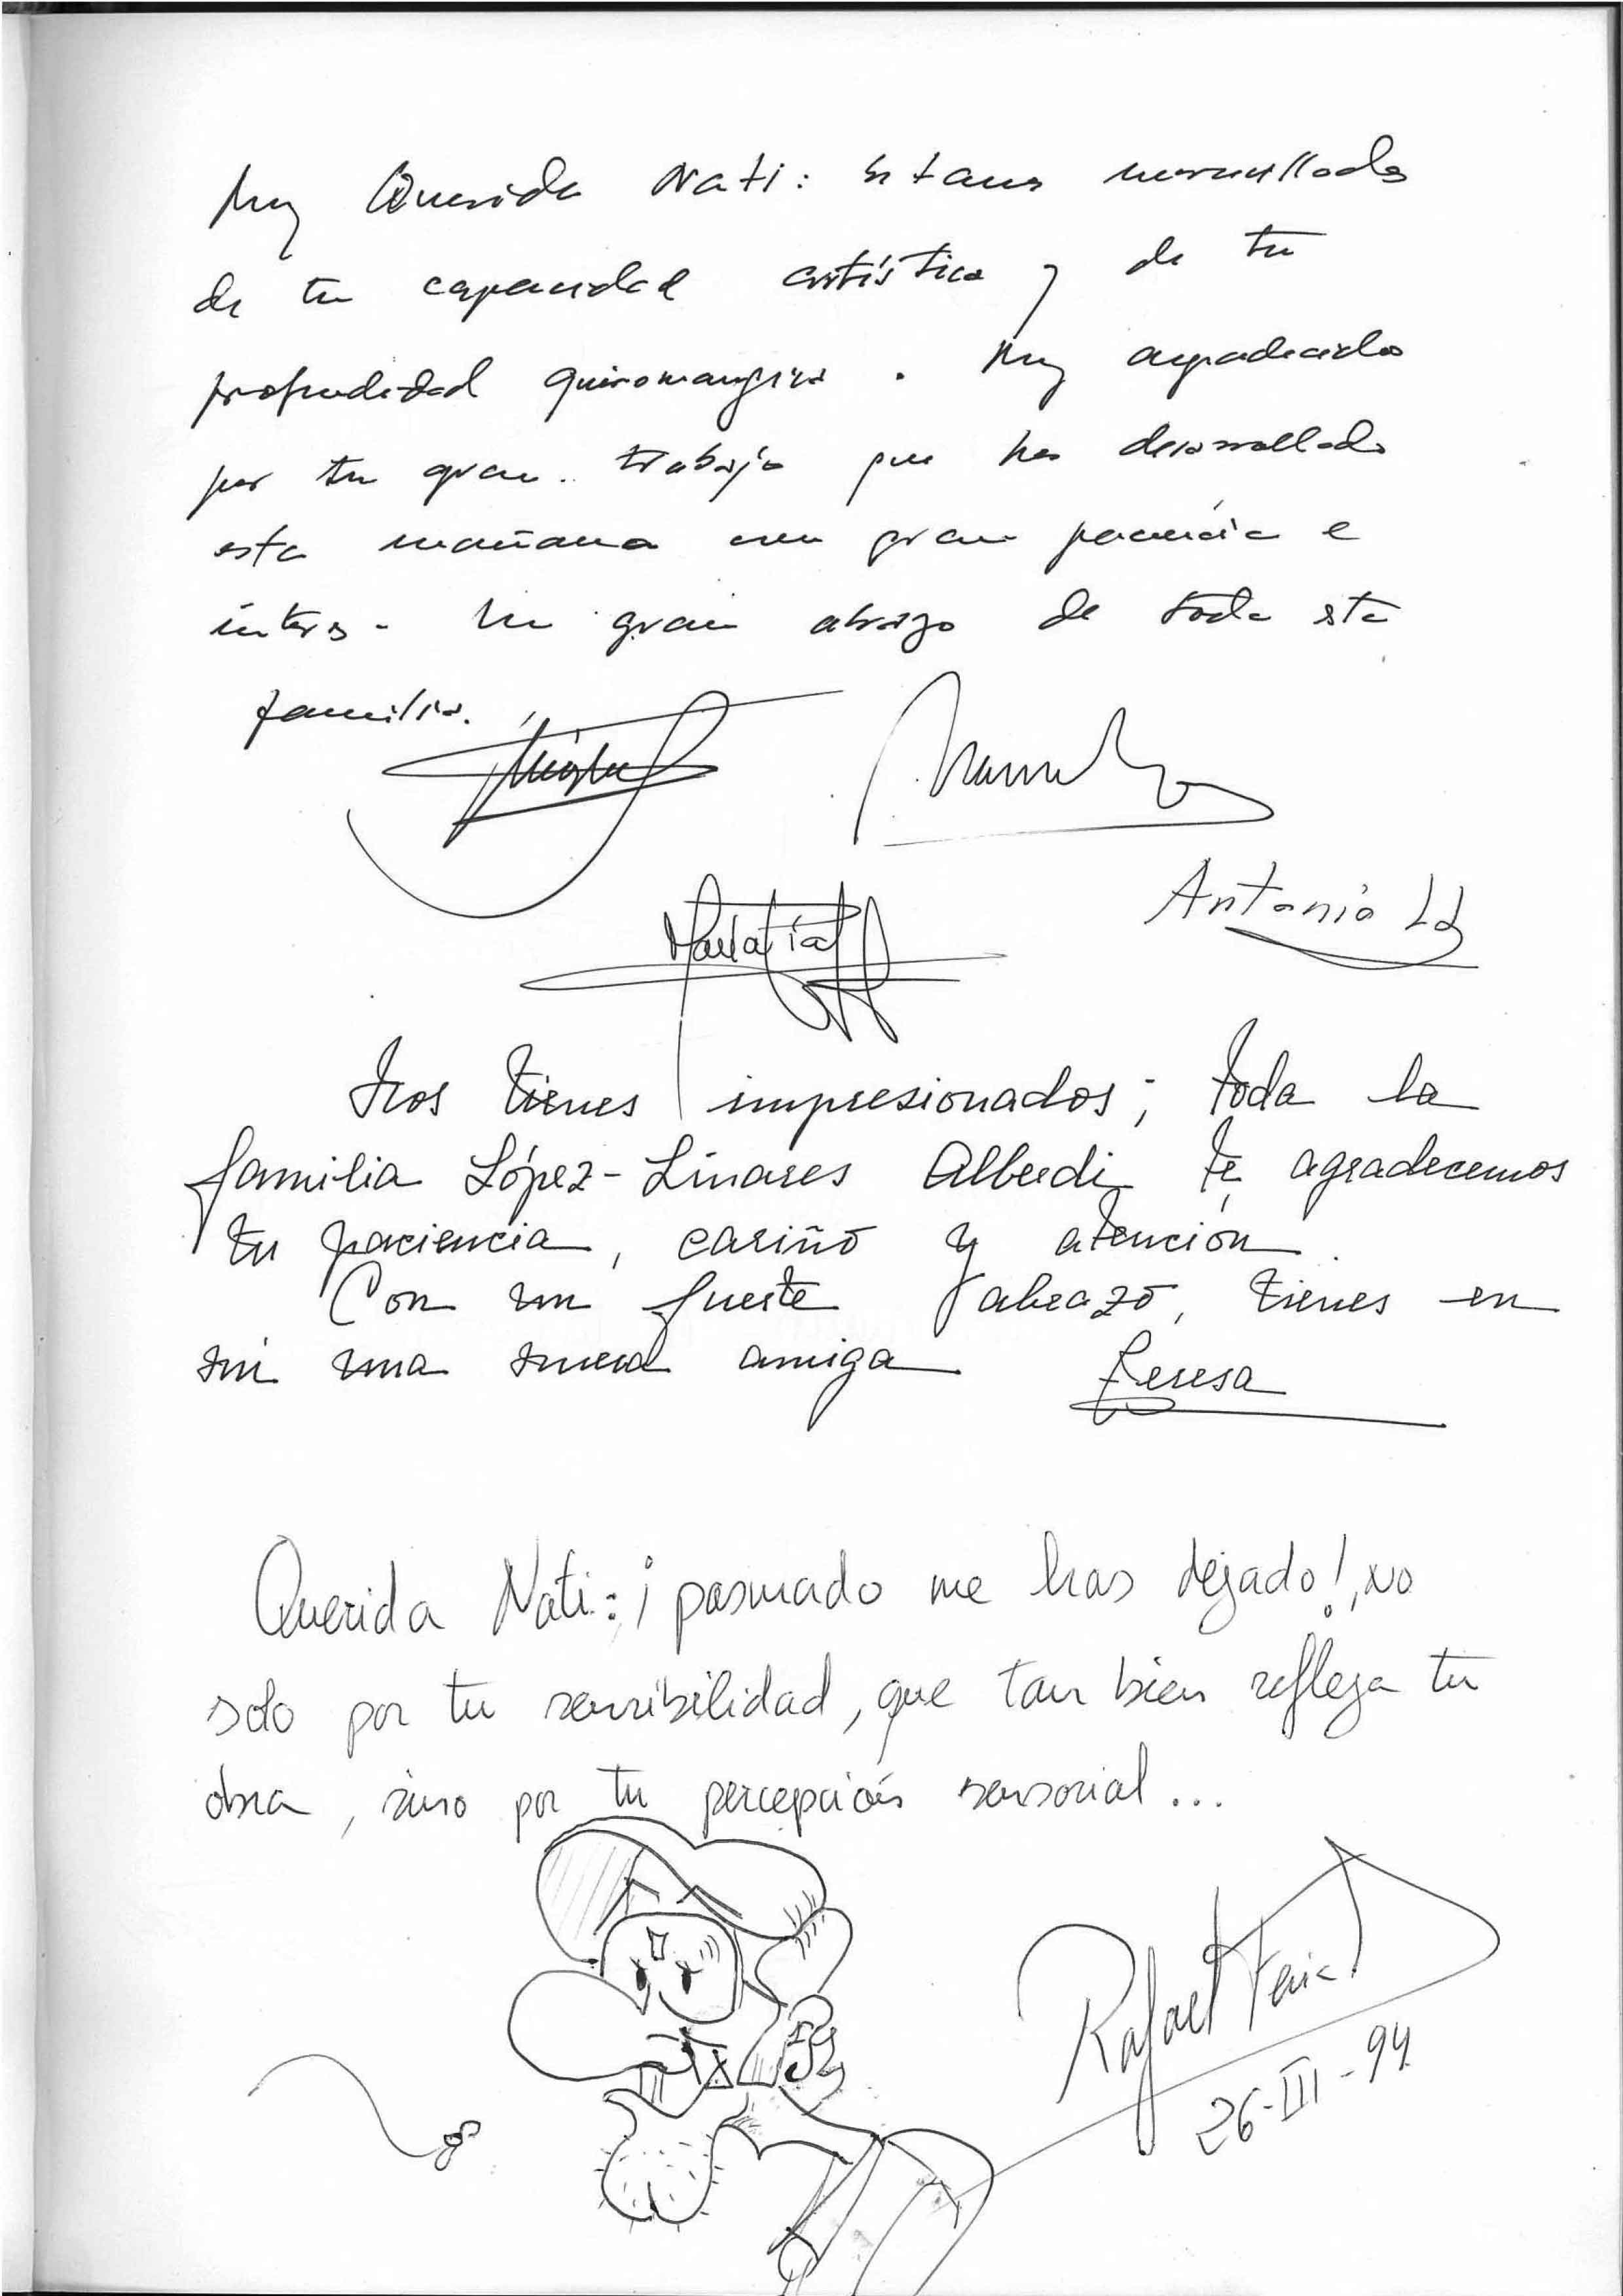 Muy Querida Nati: Estamos maravillados
de tu capacidad artística y de tu
profundidad quiromángica. Muy agradecidos
por tu gran trabajo que has desarrollado
esta mañana con gran paciencia e
interés. Un gran abrazo de toda esta
familia.
Antonio
Nos tienes impresionados; toda la
familia López-Linares Alberdi te agradecemos
tu paciencia, cariño y atención.
Con un fuerte abrazo, tienes en
mi una nueva amiga Teresa
Querida Nati: ¡pasmado me has dejado!, no
solo por tu sensibilidad, que tan bien refleja tu
obra, sino por tu percepción sensorial...
Rafael
26-III-94